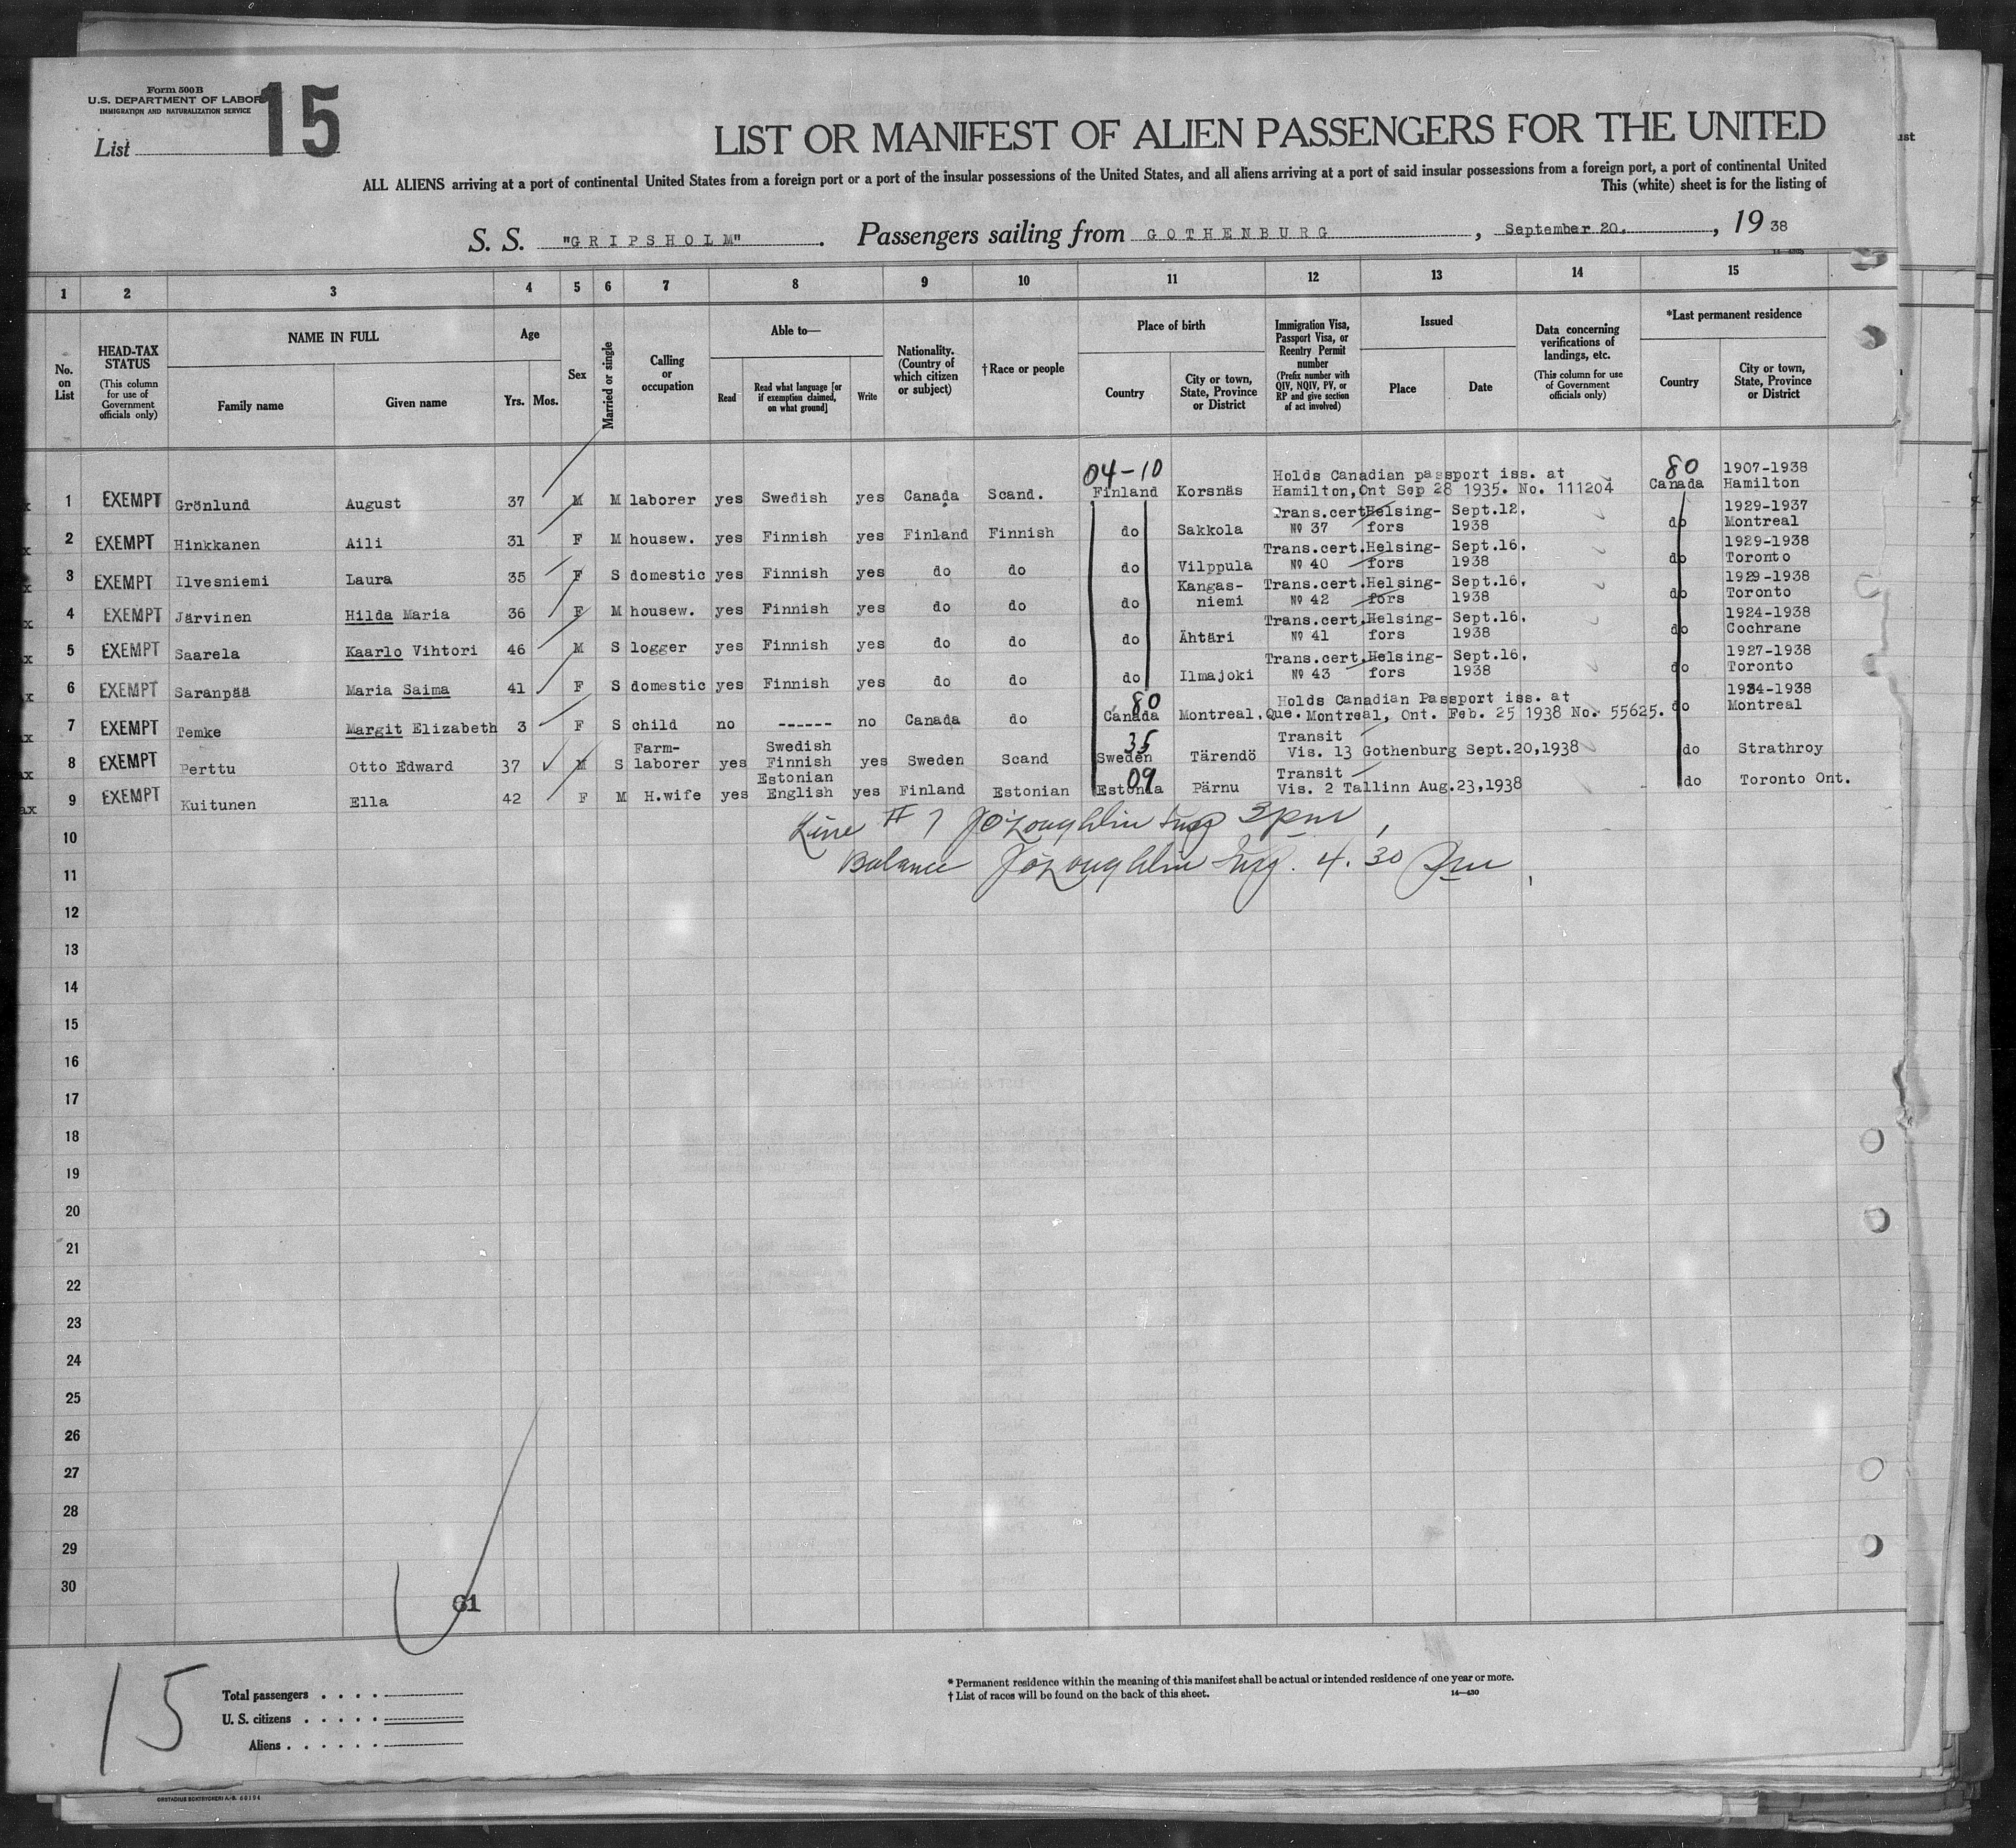 Form 500B
U.S. DEPARTMENT OF LABOR
IMMIGRATION AND NATURALIZATION SERVICE
List 15
LIST OR MANIFEST OF ALIEN PASSENGERS FOR THE UNITED
ALL ALIENS arriving at a port of continental United States from a foreign port or a port of the insular possessions of the United States, and all aliens arriving at a port of said insular possessions from a foreign port, a port of continental United
This (white) sheet is for the listing of
S. S. "GRIPSHOLM" . Passengers sailing from GOTHENBURG , September 20. , 19 38
1 2 3 4 5 6 7 8 9 10 11 12 13 14 15
No. on List
HEAD-TAX STATUS
(This column for use of Government officials only)
NAME IN FULL
Family name Given name
Age
Yrs. Mos.
Sex
Married or single
Calling or occupation
Able to—
Read Read what language [or if exemption claimed, on what ground] Write
Nationality. (Country of which citizen or subject)
† Race or people
Place of birth
Country City or town, State, Province or District
Immigration Visa, Passport Visa, or Reentry Permit number
(Prefix number with QIV, NQIV, PV, or RP and give section of act involved)
Issued
Place Date
Data concerning verifications of landings, etc.
(This column for use of Government officials only)
*Last permanent residence
Country City or town, State, Province or District
04-10 80
1 EXEMPT Grönlund August 37 M M laborer yes Swedish yes Canada Scand. Finland Korsnäs Holds Canadian passport iss. at Hamilton, Ont Sep 28 1935. No. 111204 Canada 1907-1938 Hamilton
2 EXEMPT Hinkkanen Aili 31 F M housew. yes Finnish yes Finland Finnish do Sakkola Trans.cert № 37 Helsing-fors Sept.12, 1938 do 1929-1937 Montreal
3 EXEMPT Ilvesniemi Laura 35 F S domestic yes Finnish yes do do do Vilppula Trans.cert. № 40 Helsing-fors Sept.16, 1938 do 1929-1938 Toronto
4 EXEMPT Järvinen Hilda Maria 36 F M housew. yes Finnish yes do do do Kangas-niemi Trans.cert. № 42 Helsing-fors Sept.16, 1938 do 1929-1938 Toronto
5 EXEMPT Saarela Kaarlo Vihtori 46 M S logger yes Finnish yes do do do Ähtäri Trans.cert. № 41 Helsing-fors Sept.16, 1938 do 1924-1938 Cochrane
6 EXEMPT Saranpää Maria Saima 41 F S domestic yes Finnish yes do do do Ilmajoki Trans.cert. № 43 Helsing-fors Sept.16, 1938 do 1927-1938 Toronto
80
7 EXEMPT Temke Margit Elizabeth 3 F S child no ------ no Canada do Canada Montreal, Que. Holds Canadian Passport iss. at Montreal, Ont. Feb. 25 1938 No. 55625. do 1934-1938 Montreal
35
8 EXEMPT Perttu Otto Edward 37 M S Farm-laborer yes Swedish Finnish yes Sweden Scand Sweden Tärendö Transit Vis. 13 Gothenburg Sept.20,1938 do Strathroy
09
9 EXEMPT Kuitunen Ella 42 F M H.wife yes Estonian English yes Finland Estonian Estonia Pärnu Transit Vis. 2 Tallinn Aug.23,1938 do Toronto Ont.
Line # 7 J O'Loughlin Insp 3 pm
Balance J O'Loughlin Insp. 4.30 Pm
10
11
12
13
14
15
16
17
18
19
20
21
22
23
24
25
26
27
28
29
30
61
15
Total passengers . . . .
U. S. citizens . . . . .
Aliens . . . . . .
* Permanent residence within the meaning of this manifest shall be actual or intended residence of one year or more.
† List of races will be found on the back of this sheet.
14—430